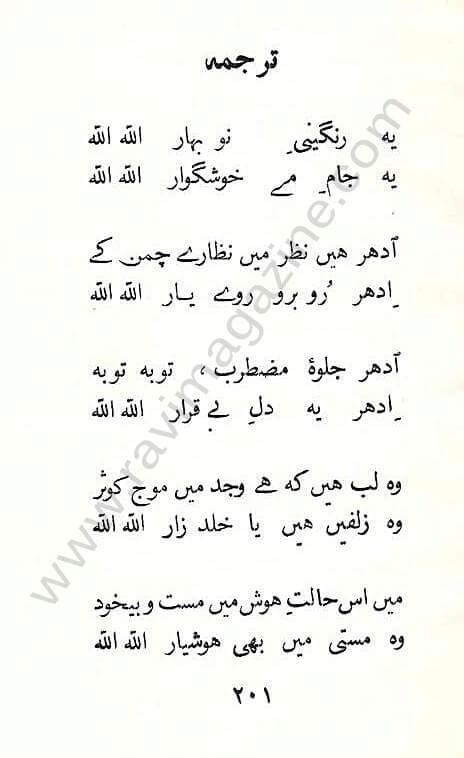 ترجمہ
یہ رنگینیِ نو بہار اللہ اللہ
یہ جامِ مے خوشگوار اللہ اللہ
اُدھر ہیں نظر میں نظارے چمن کے
اِدھر رُو برو روے یار اللہ اللہ
اُدھر جلوۂ مضطرب، توبہ توبہ
اِدھر یہ دلِ بے قرار اللہ اللہ
وہ لب ہیں کہ ہے وجد میں موج کوثر
وہ زلفیں ہیں یا خلد زار اللہ اللہ
میں اس حالتِ ہوش میں مست و بیخود
وہ مستی میں بھی ہوشیار اللہ اللہ
۲۰۱
www.ravimagazine.com